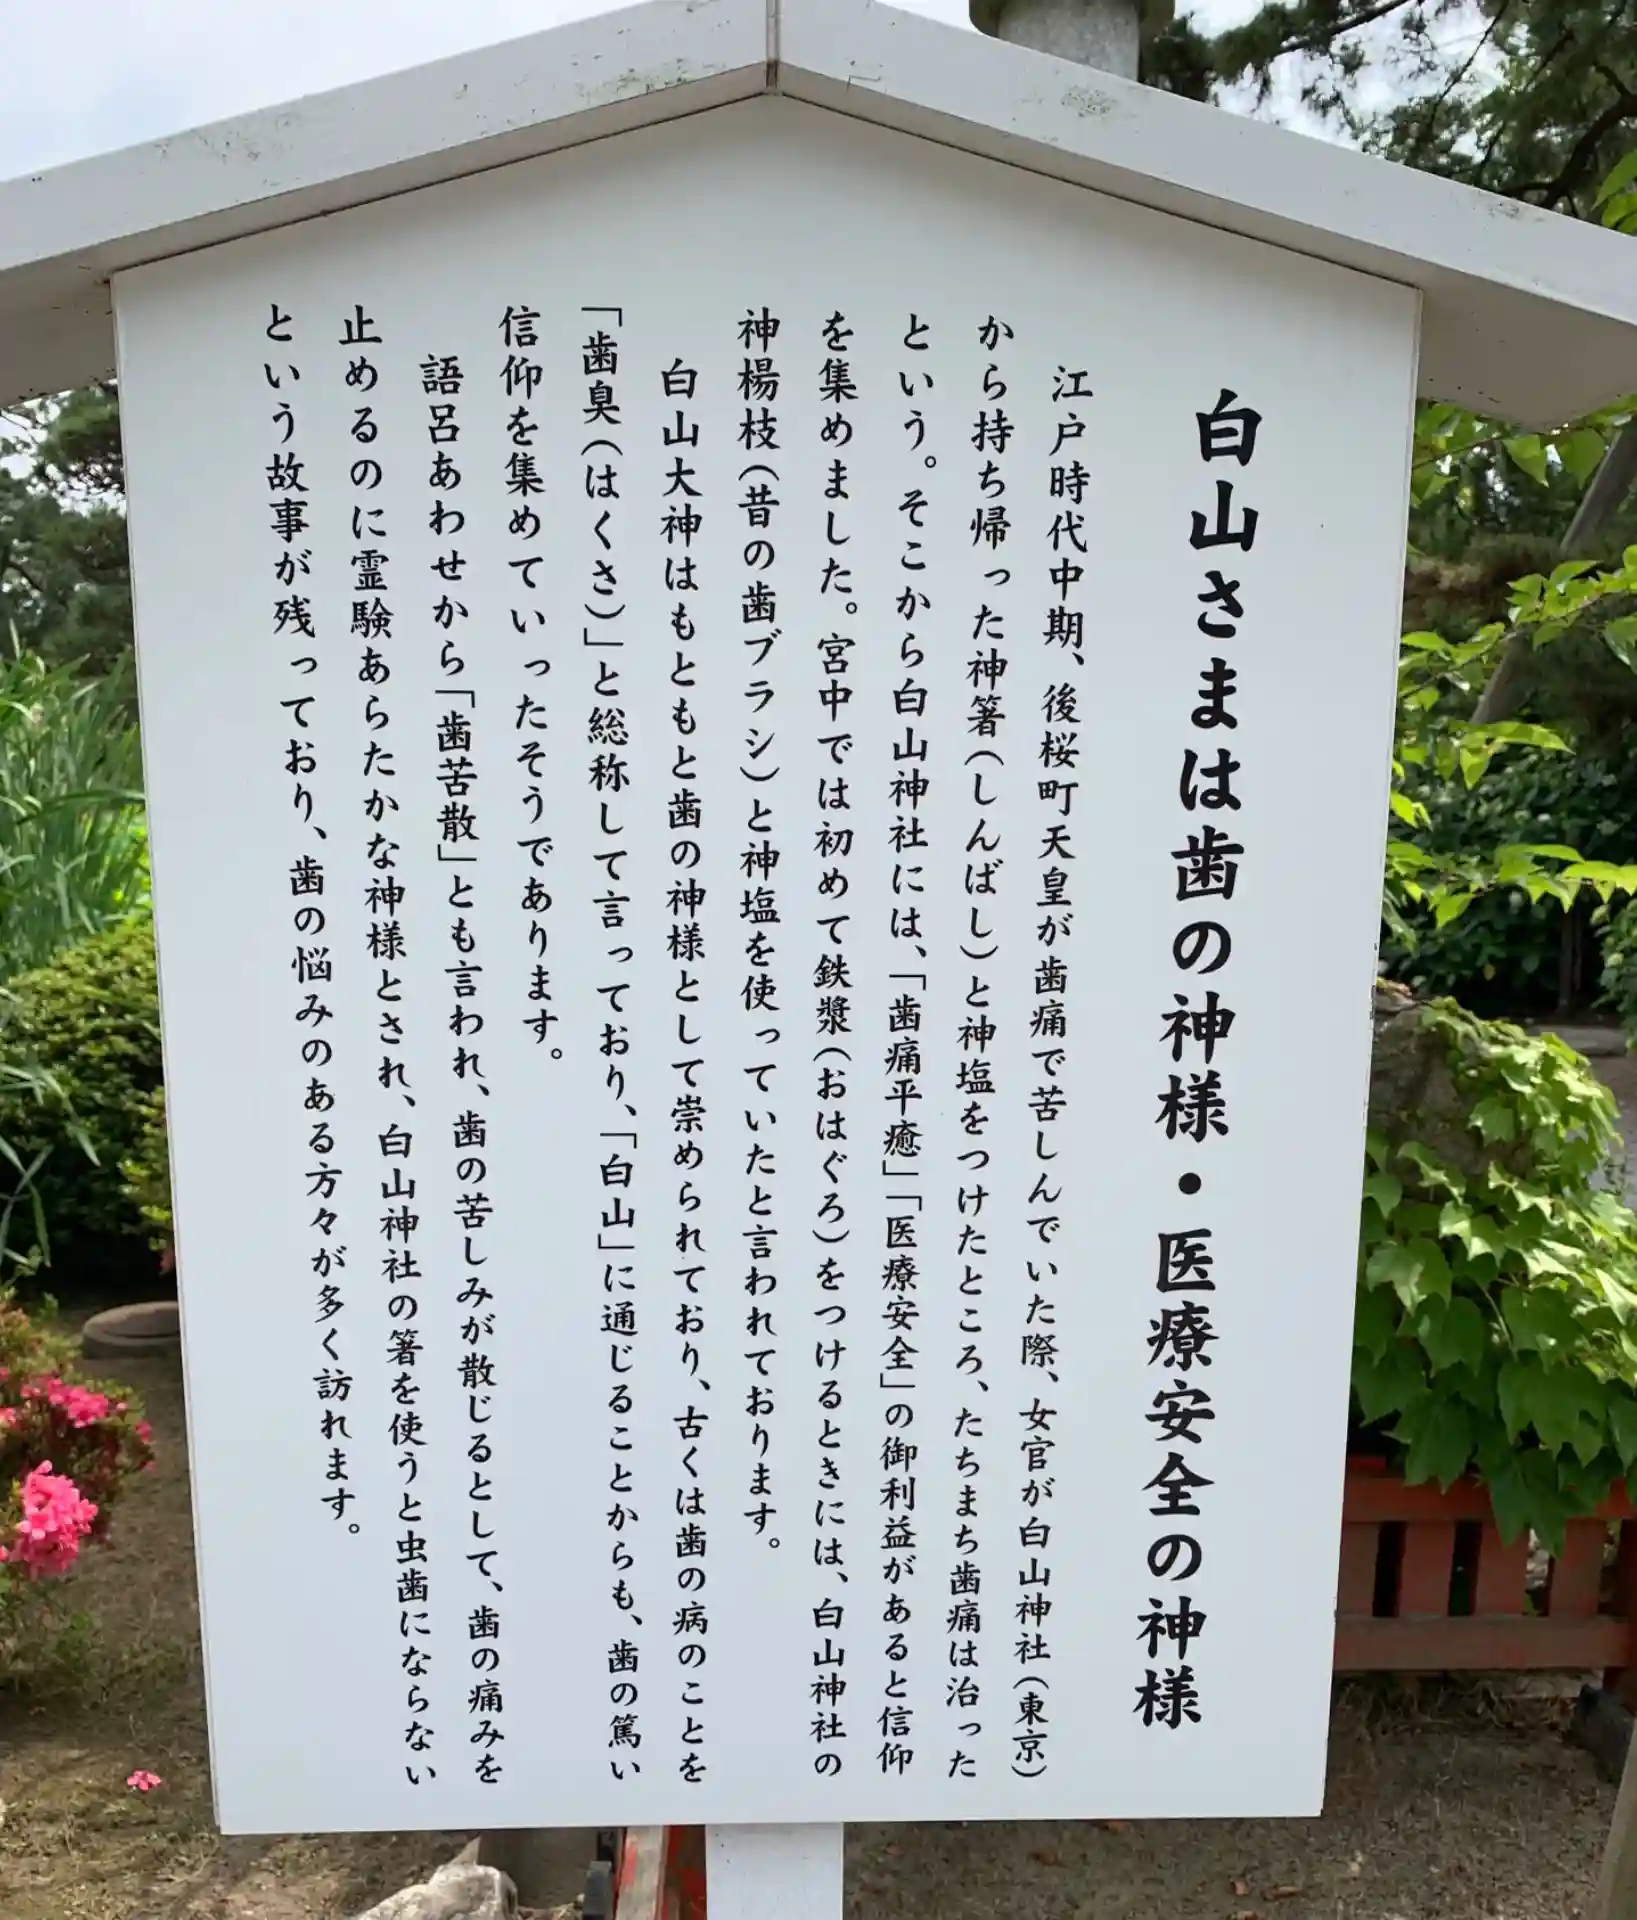 白山さまは歯の神様・医療安全の神様
江戸時代中期、後桜町天皇が歯痛で苦しんでいた際、女官が白山神社(東京)
から持ち帰った神箸(しんばし)と神塩をつけたところ、たちまち歯痛は治った
という。そこから白山神社には、「歯痛平癒」「医療安全」の御利益があると信仰
を集めました。宮中では初めて鉄漿(おはぐろ)をつけるときには、白山神社の
神楊枝(昔の歯ブラシ)と神塩を使っていたと言われております。
白山大神はもともと歯の神様として崇められており、古くは歯の病のことを
「歯臭(はくさ)」と総称して言っており、「白山」に通じることからも、歯の篤い
信仰を集めていったそうであります。
語呂あわせから「歯苦散」とも言われ、歯の苦しみが散じるとして、歯の痛みを
止めるのに霊験あらたかな神様とされ、白山神社の箸を使うと虫歯にならない
という故事が残っており、歯の悩みのある方々が多く訪れます。